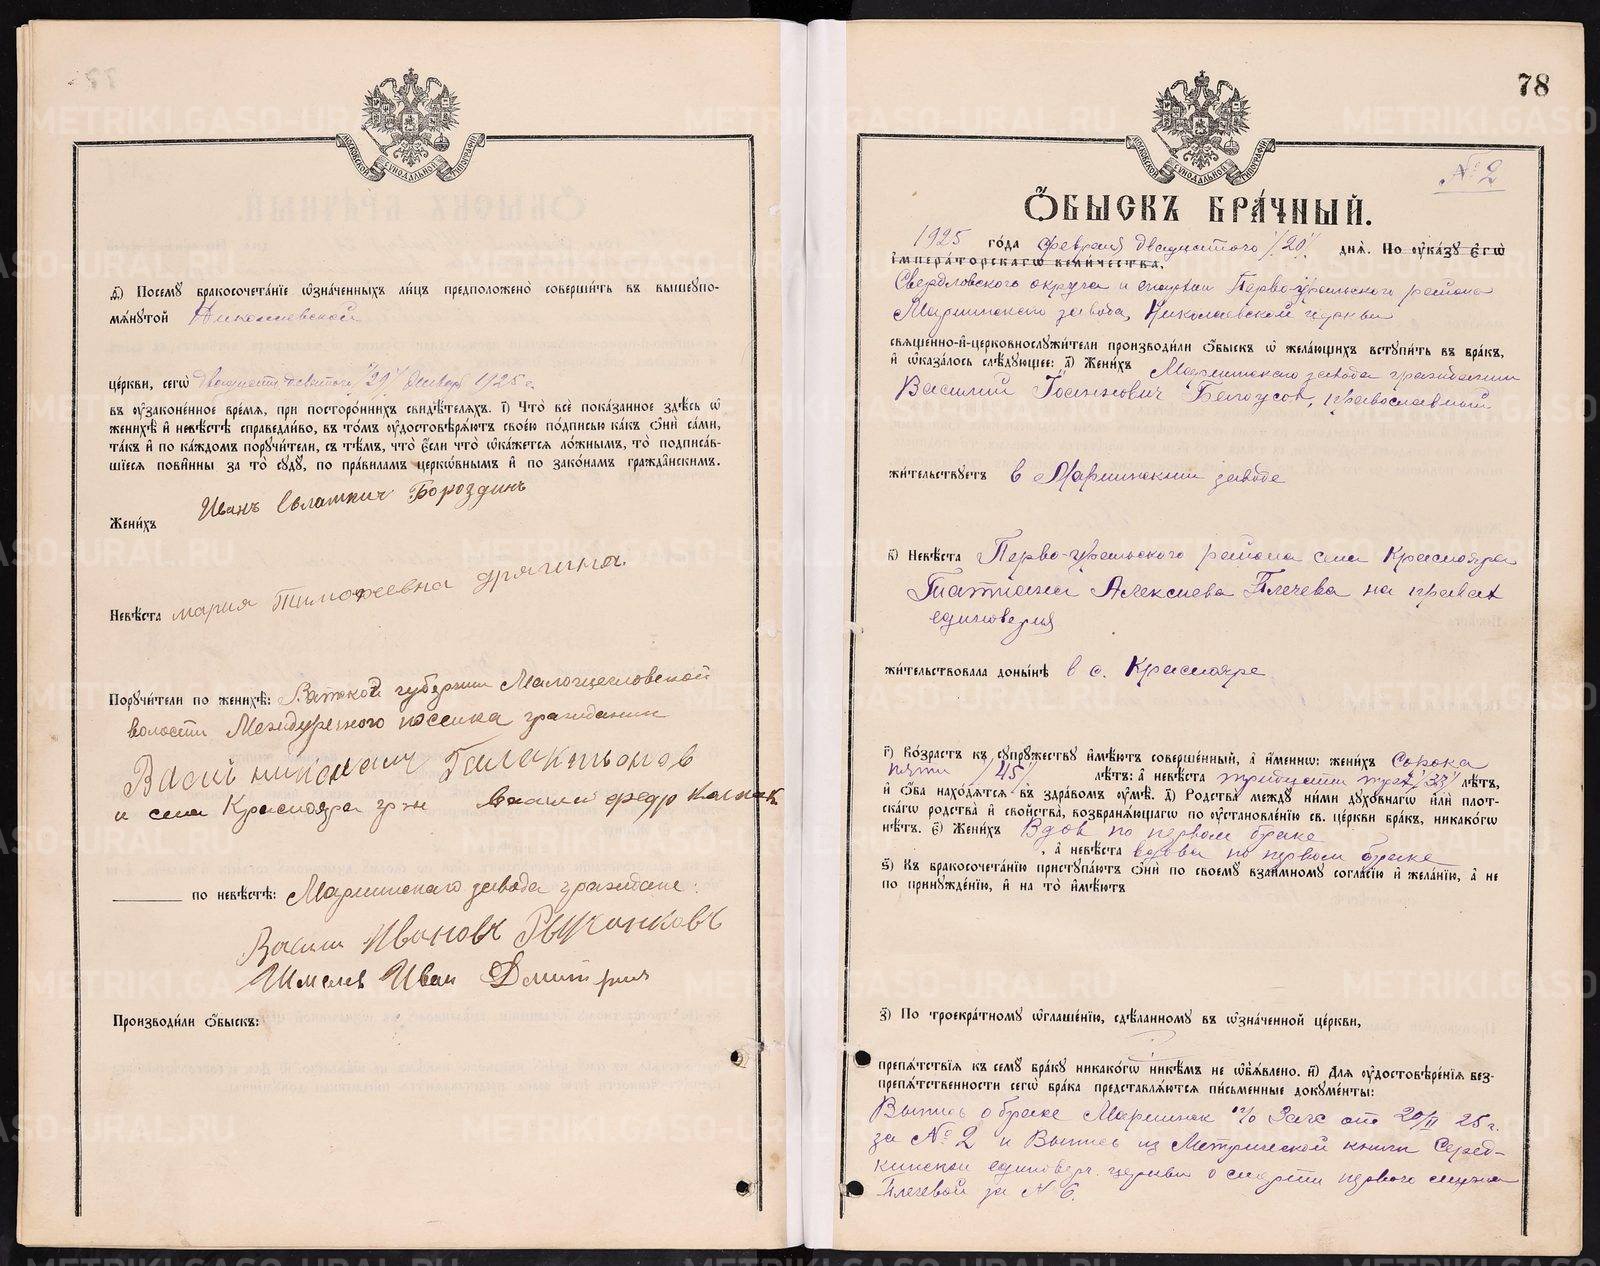 МОСКОВСКОЙ СѴНОДАЛЬНОЙ ТИПОГРАФІИ
д҃) Посемꙋ бракосочета́нїе ѡ҆зна́ченныхъ ли́цъ предположено̀ соверши́ть въ вышеꙋпо-
мѧ́нꙋтой Николаевской
це́ркви, сегѡ̀ двадцать девятого /29/ 1925 г.
въ ᲂу҆зако́ненное вре́мѧ, при посторо́ннихъ свидѣ́телѧхъ. і҃) Что̀ всѐ пока́занное здѣ́сь ѡ҆
женихѣ̀ и҆ невѣ́стѣ справедли́во, въ то́мъ ᲂу҆достовѣрѧ́ютъ свое́ю по́дписью ка́къ ѻ҆нѝ са́ми,
та́къ и҆ по ка́ждомъ порꙋчи́тели, съ тѣ́мъ, что̀ є҆́сли что̀ ѡ҆ка́жетсѧ ло́жнымъ, то̀ подписа́в-
шїесѧ пови́нны за то̀ сꙋдꙋ̀, по пра́виламъ церкѡ́внымъ и҆ по зако́намъ гражда̑нскимъ.
Жени́хъ Иванъ Бороздинъ
Невѣ́ста мария Тимофеевна дрягина.
Порꙋчи́тели по женихѣ̀: Вятской губернии
волости Междуречного посёлка гражданин
Галактионов
и села Краснояра гр-н
по невѣ́стѣ: Мариинского завода граждане:
Васили Ивановъ
Шмелев Иван Дмитрия
Производи́ли ѻ҆́быскъ:
78
МОСКОВСКОЙ СѴНОДАЛЬНОЙ ТИПОГРАФІИ
№ 2
Ѻ҆́БЫСКЪ БРА́ЧНЫЙ.
1925 го́да февраля двадцатого /20/ днѧ̀. По ᲂу҆ка́зꙋ Є҆гѡ̀
і҆мпера́торскагѡ вели́чества,
Свердловского округа и епархии Перво-уральского района
Мариинского завода, Николаевской церкви
свѧще́нно-и҆-церковнослꙋжи́тели производи́ли ѻ҆́быскъ ѡ҆ жела́ющихъ встꙋпи́ть въ бра́къ,
и҆ ѡ҆каза́лось слѣ́дꙋющее: а҃) Жени́хъ Мариинского завода гражданин
Василий Иоаннович Белоусов, православный
жи́тельствꙋетъ в Мариинском заводе
в҃) Невѣ́ста Перво-уральского района села Краснояра
Татиана Алексиева Плечева на правах
единоверия
жи́тельствовала доны́нѣ в с. Краснояре
г҃) Во́зрастъ къ сꙋпрꙋ́жествꙋ и҆мѣ́ютъ соверше́нный, а҆ и҆́меннѡ: жени́хъ Сорока
пяти /45/ лѣ́тъ: а҆ невѣ́ста тридцати трех /33/ лѣ́тъ,
и҆ ѻ҆́ба нахо́дѧтсѧ въ здра́вомъ ᲂу҆мѣ̀. д҃) Родства̀ междꙋ ни́ми дꙋхо́внагѡ и҆лѝ плот-
ска́гѡ родства̀ и҆ сво́йства, возбранѧ́ющагѡ по ᲂу҆становле́нїю св. це́ркви бра́къ, никако́гѡ
нѣ́тъ. є҃) Жени́хъ Вдов по первом браке
, а҆ невѣ́ста вдова по первом браке
ѕ҃) Къ бракосочета́нїю пристꙋпа́ютъ ѻ҆нѝ по своемꙋ̀ взаи́мномꙋ согла́сїю и҆ жела́нїю, а҆ не
по принꙋжде́нїю, и҆ на то̀ и҆мѣ́ютъ
з҃) По троекра́тномꙋ ѡ҆глаше́нїю, сдѣ́ланномꙋ въ ѡ҆зна́ченной це́ркви,
препѧ́тствїѧ къ семꙋ̀ бра́кꙋ никако́гѡ никѣ́мъ не ѡ҆б̾ѧ́влено. и҃) Длѧ ᲂу҆достовѣре́нїѧ без-
препѧ́тственности сегѡ̀ бра́ка представлѧ́ютсѧ пи́сьменные докꙋме́нты:
Выпись о браке Мариинск Загс от 20/II 25 г.
за № 2 и Выпись из Метрической книги Серед-
кинской единоверч. церкви о смерти первого
Плечевой за № 6.